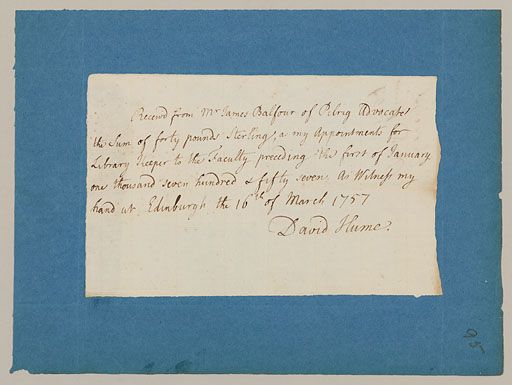 Receivd from Mr James Balfour of Pilrig Advocate
the Sum of forty pounds Sterling, a my Appointments for
Library keeper to the Faculty preceding the first of January
one thousand seven hundred & fifty seven. As Witness my
hand at Edinburgh the 16th of March 1757
David Hume.
95